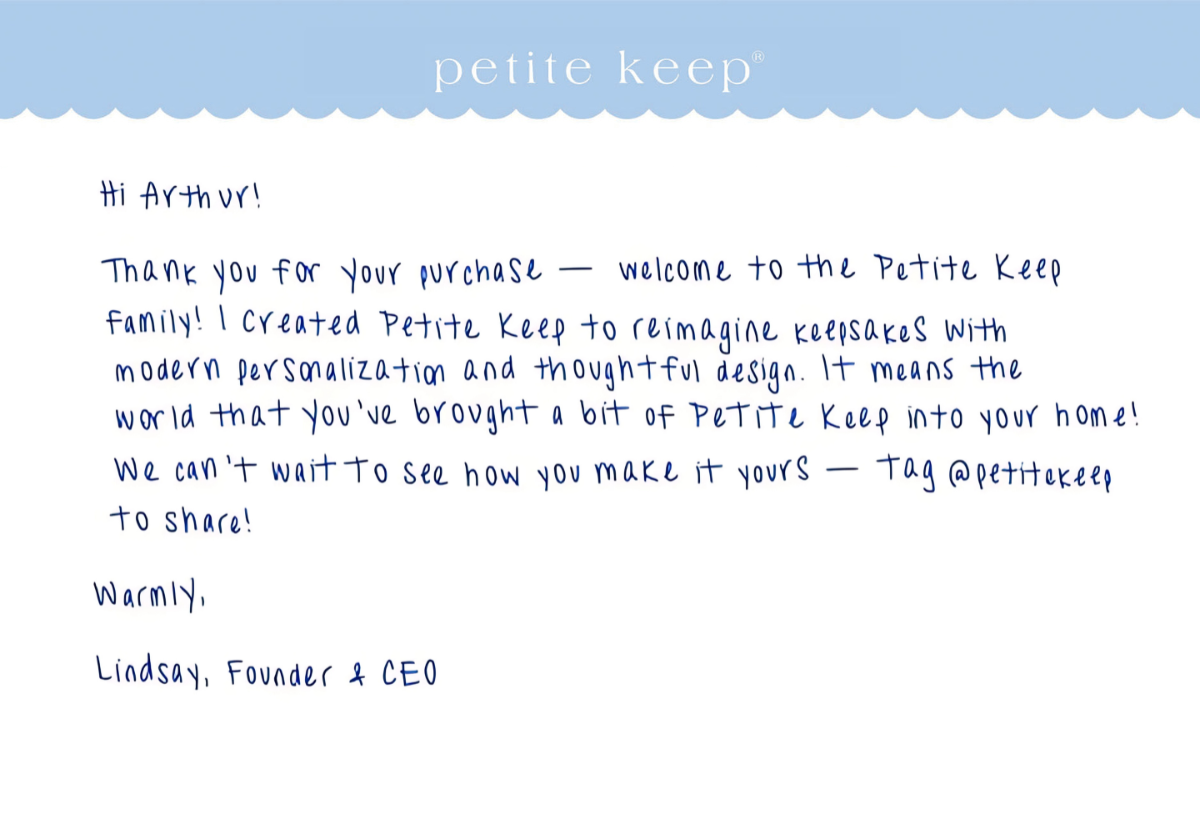 petite keep®
Hi Arthur!
Thank you for your purchase — welcome to the Petite Keep
family! I created Petite Keep to reimagine keepsakes with
modern personalization and thoughtful design. It means the
world that you've brought a bit of Petite Keep into your home!
We can't wait to see how you make it yours — tag @petitekeep
to share!
Warmly,
Lindsay, Founder & CEO